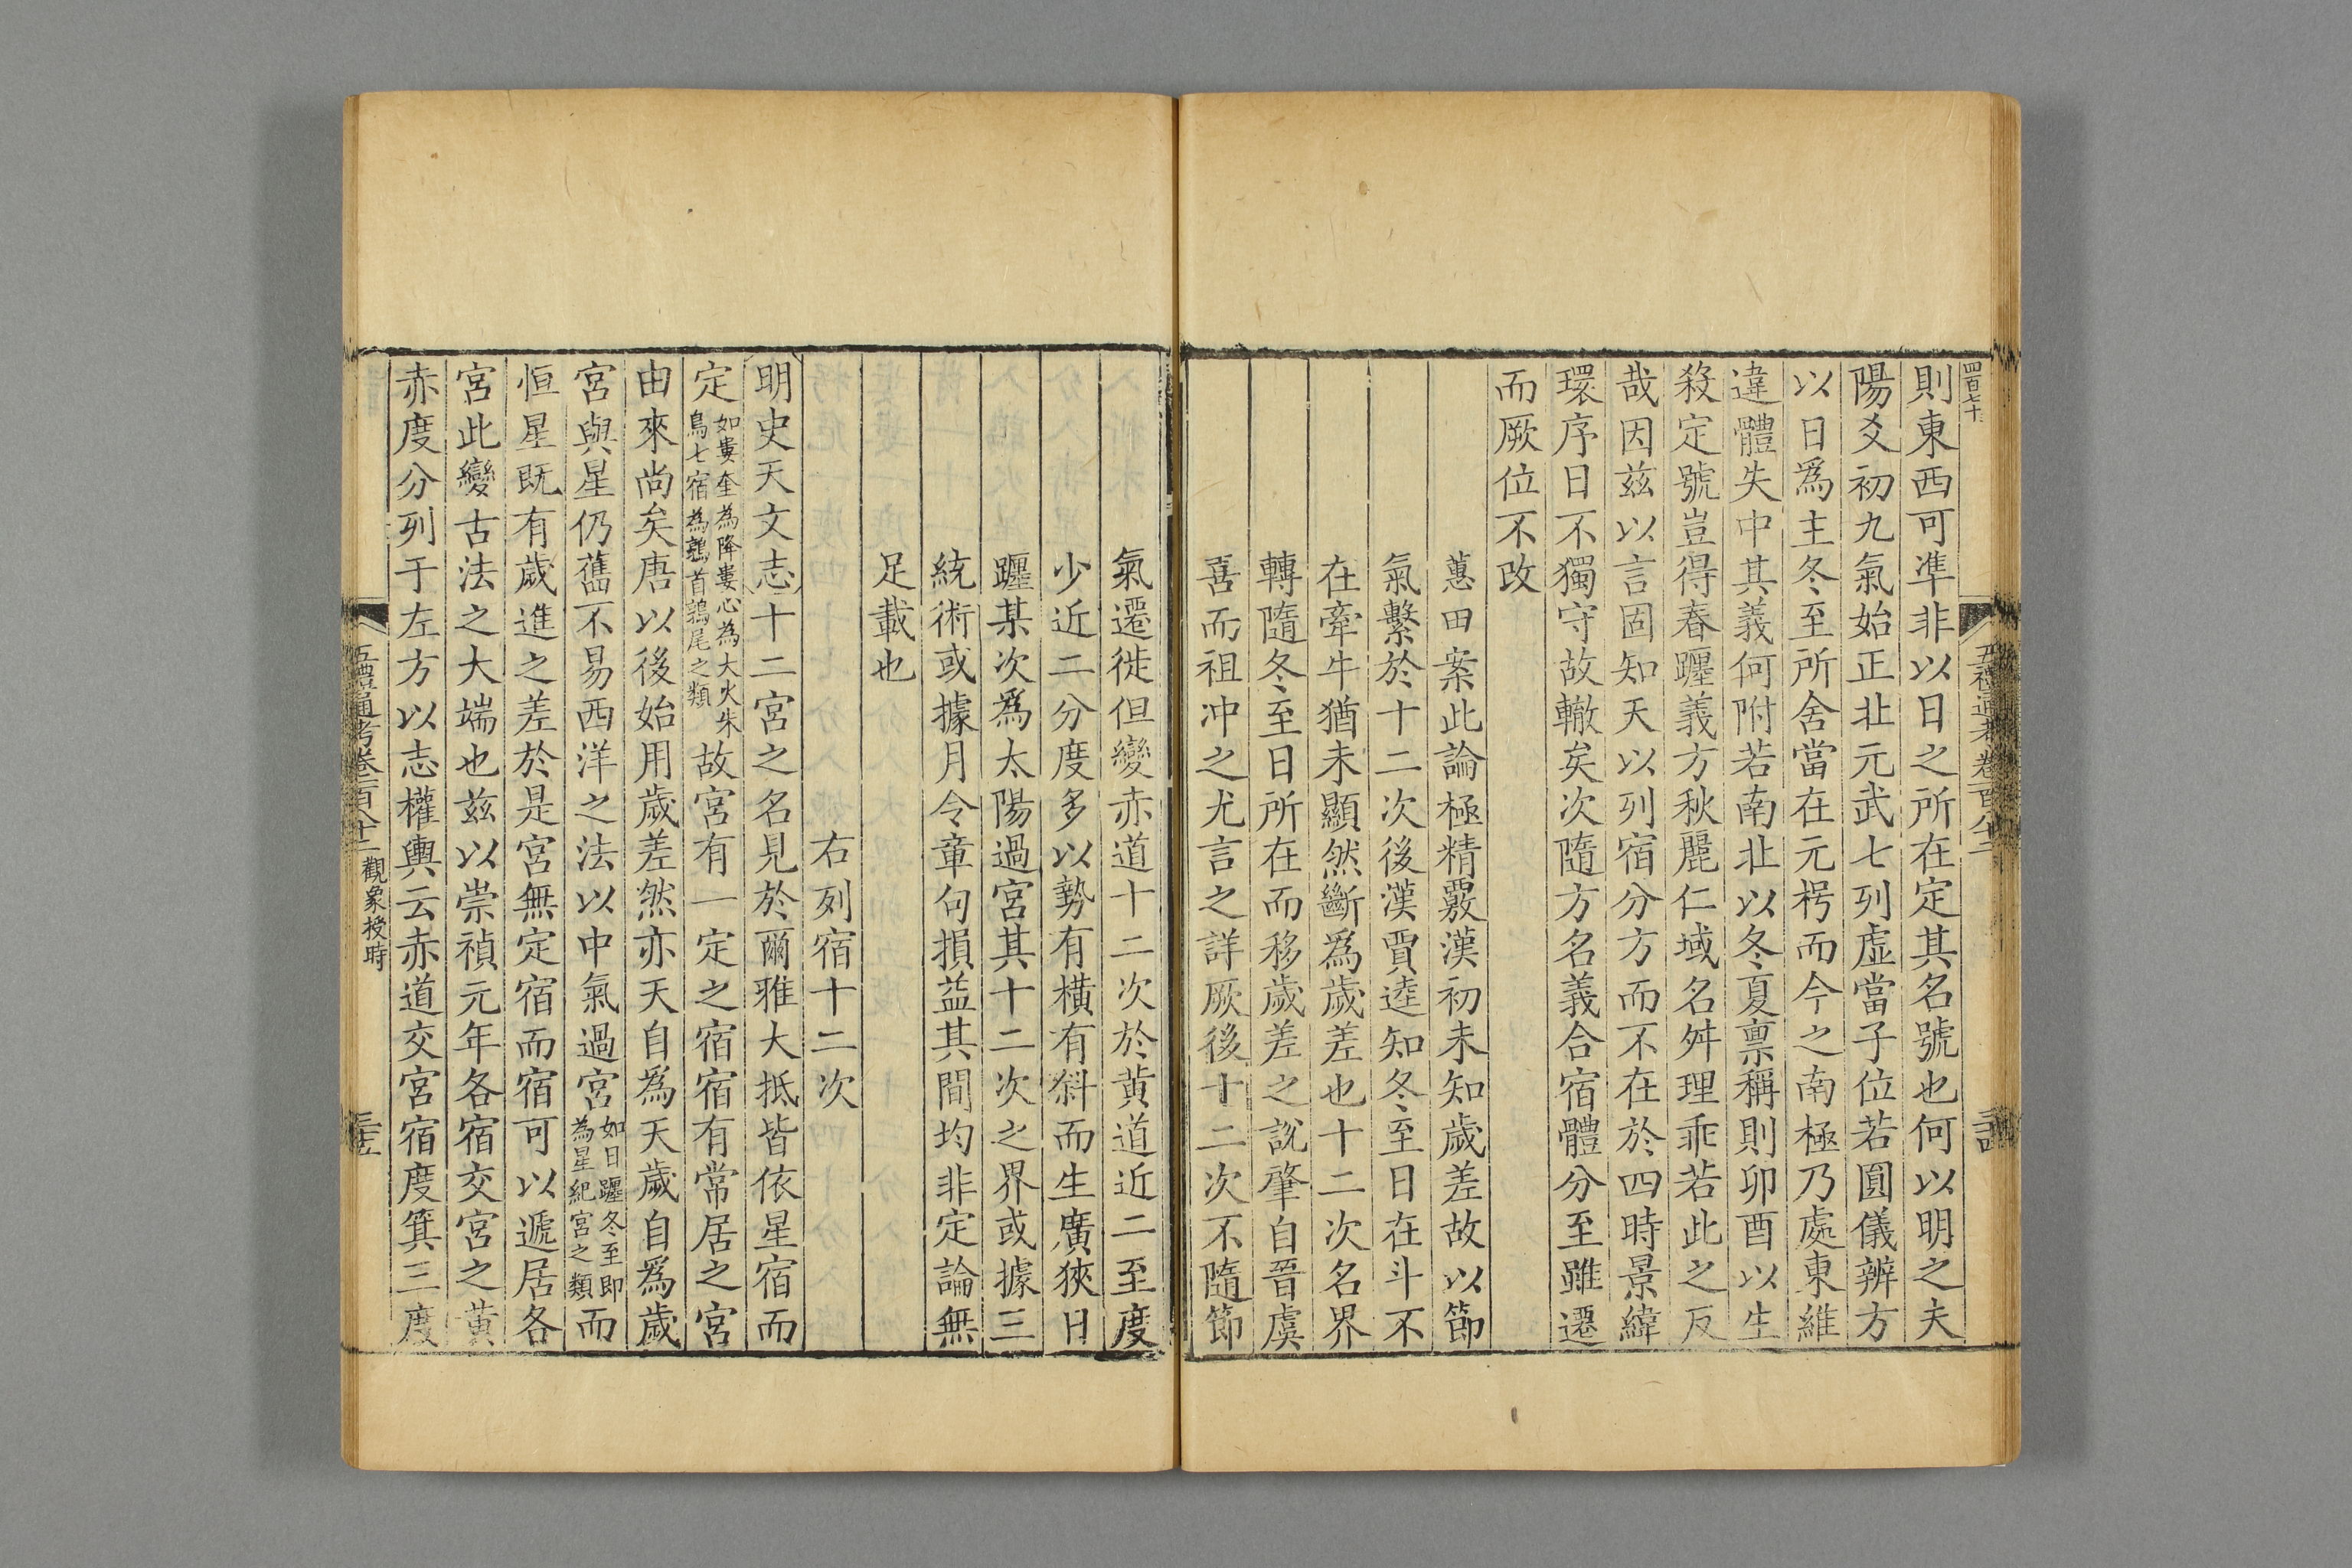 四百七十
五禮通考卷一百八十二
則東西可準非以日之所在定其名號也何以明之夫
陽爻初九氣始正北元武七列虛當子位若圓儀辨方
以日爲主冬至所舍當在元枵而今之南極乃處東維
違體失中其義何附若南北以冬夏禀稱則卯酉以生
殺定號豈得春躔義方秋麗仁域名舛理乖若此之反
哉因兹以言固知天以列宿分方而不在於四時景緯
環序日不獨守故轍矣次隨方名義合宿體分至雖遷
而厥位不改
蕙田案此論極精覈漢初未知歲差故以節
氣繫於十二次後漢賈逵知冬至日在斗不
在牽牛猶未顯然斷爲歲差也十二次名界
轉隨冬至日所在而移歲差之說肇自晉虞
喜而祖冲之尤言之詳厥後十二次不隨節
氣遷徙但變赤道十二次於黃道近二至度
少近二分度多以勢有橫有斜而生廣狹日
躔某次爲太陽過宮其十二次之界或據三
統術或據月令章句損益其間均非定論無
足載也
右列宿十二次
明史天文志十二宮之名見於爾雅大抵皆依星宿而
定如婁奎為降婁心為大火朱鳥七宿為鶉首鶉尾之類故宮有一定之宿宿有常居之宮
由來尚矣唐以後始用歲差然亦天自爲天歲自爲歲
宮與星仍舊不易西洋之法以中氣過宮如日躔冬至即為星紀宮之類而
恒星既有歲進之差於是宮無定宿而宿可以遞居各
宮此變古法之大端也兹以崇禎元年各宿交宮之黃
赤度分列于左方以志權輿云赤道交宮宿度箕三度
五禮通考卷一百八十二 觀象授時